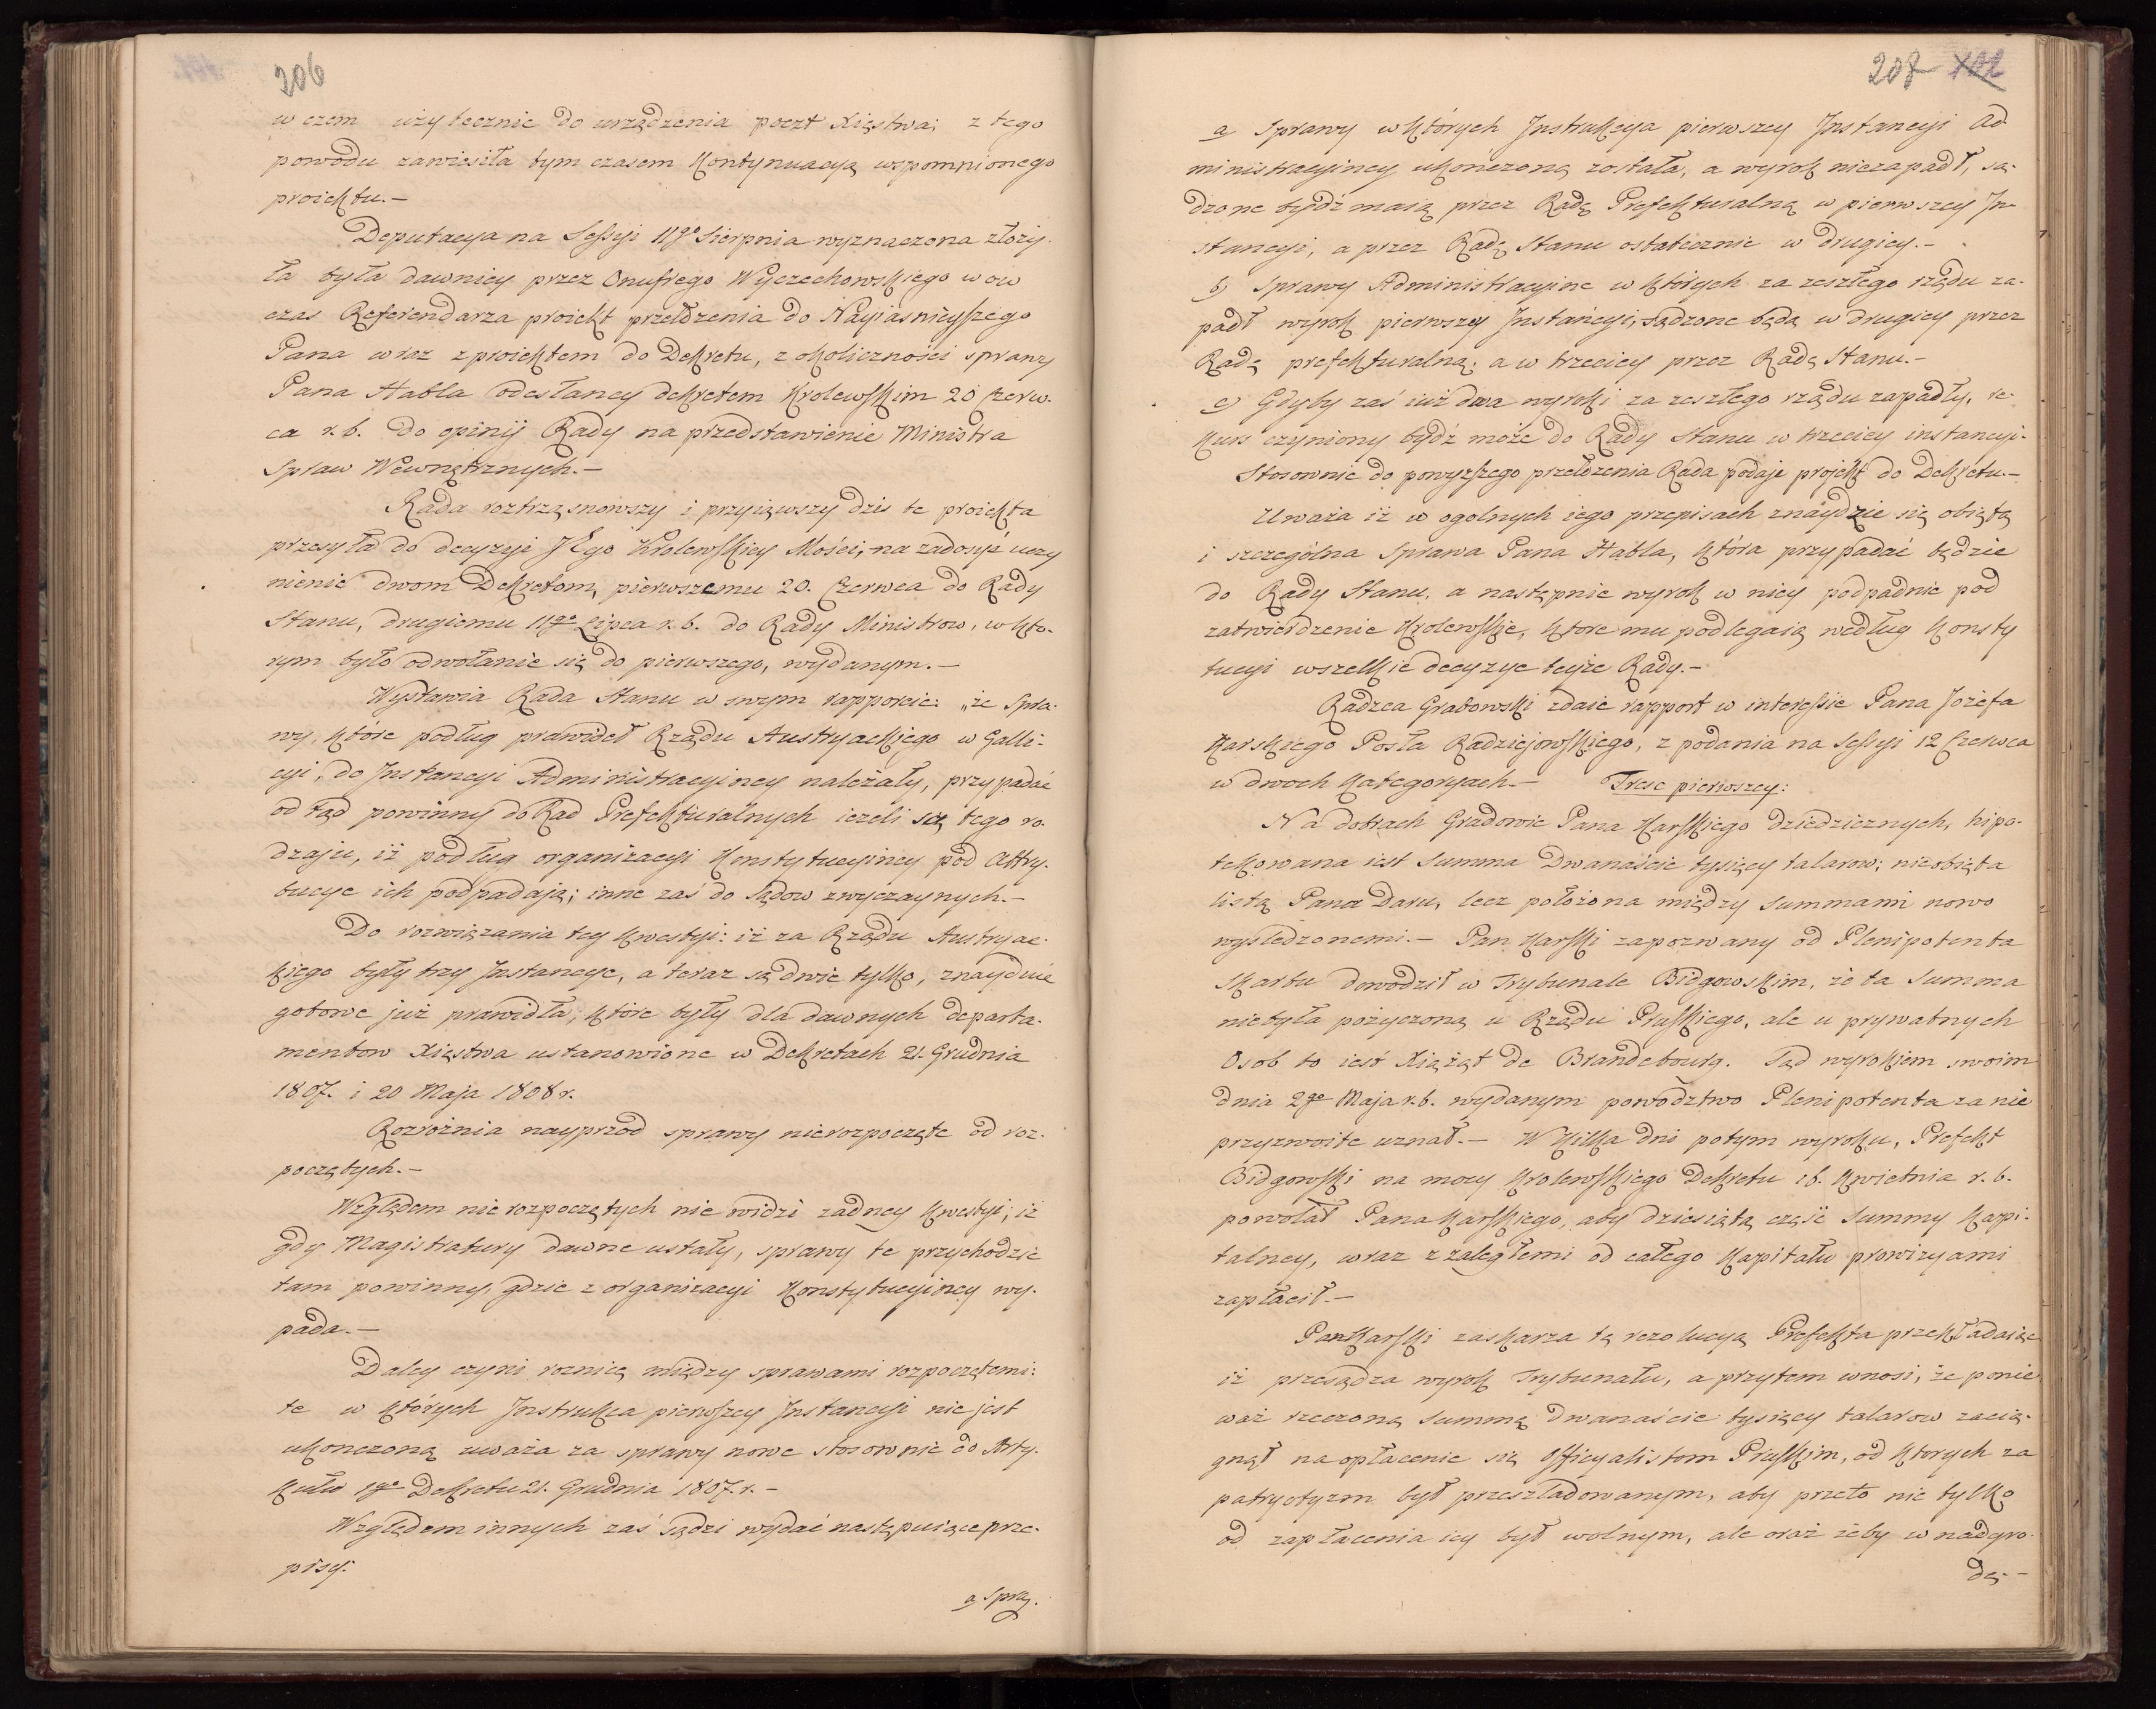 206
w czem użytecznie do urządzenia poczt Xięstwa; z tego
powodu zawiesiła tym czasem kontynuacyą wspomnionego
proiektu.—
Deputacya na Sessyi 11go Sierpnia wyznaczona złoży-
ła była dawniey przez Onufrego Wyczechowskiego wów
czas Referendarza proiekt przełożenia do Nayiaśnieyszego
Pana wraz z proiektem do Dekretu, z okoliczności sprawy
Pana Habla odesłaney dekretem Krolewskim 20 Czerw-
ca r.b. do opinij Rady na przedstawienie Ministra
Spraw Wewnętrznych.—
Rada roztrząsnowszy i przyiąwszy dzis te proiekta
przesyła do decyzyi JEgo Krolewskiey Mości, na zadosyć uczy
nienie dwom Dekretom, pierwszemu 20. Czerwca do Rady
Stanu, drugiemu 11go Lipca r.b. do Rady Ministrow, w kto-
rym było odwołanie się do pierwszego, wydanym.—
Wystawia Rada Stanu w swym rapporcie: „że Spra-
wy, które podług prawideł Rządu Austryackiego w Galli-
cyi, do Instancyi Administracyiney należały, przypadać
od tąd powinny do Rad Prefekturalnych ieżeli są tego ro-
dzaju, iż podług organizacyi Konstytucyiney pod Attry-
bucye ich podpadają; inne zaś do Sądow zwyczaynych.—
Do rozwiązania tey kwestyi: iż za Rządu Austryac-
kiego były trzy Instancye, a teraz są dwie tylko, znayduie
gotowe już prawidła, które były dla dawnych departa-
mentow Xięstwa ustanowione w Dekretach 21. Grudnia
1807. i 20 Maja 1808 r.
Rozróżnia nayprzod sprawy nierozpoczęte od roz-
poczętych.—
Względem nie rozpoczętych nie widzi żadney kwestyi; iż
gdy Magistratury dawne ustały, sprawy te przychodzić
tam powinny, gdzie z organizacyi Konstytucyiney wy-
pada.—
Daley czyni roznicę między sprawami rozpoczętemi:
te w których Instrukca pierwszey Instancyi nie jest
ukonczoną uważa za sprawy nowe stosownie do Arty-
kułu 1go Dekretu 21. Grudnia 1807. r.—
Względem innych zaś sądzi wydać następuiące prze-
pisy:
a Spra.
208 102
a Sprawy w których Instrukcya pierwszey Instancyi Ad
ministracyiney ukończoną została, a wyrok niezapadł, są-
dzone bydź maią przez Radę Prefekturalną w pierwszey In-
stancyi, a przez Radę Stanu ostatecznie w drugiey.—
b) Sprawy Administracyine w których za zeszłego rządu za-
padł wyrok pierwszey Instancyi, sądzone będą w drugiey przez
Radę prefekturalną; a w trzeciey przez Radę Stanu.—
c) Gdyby zaś iuż dwa wyroki za zeszłego rządu zapadły, re-
kurs czyniony bydź może do Rady Stanu w trzeciey instancyi.
Stosownie do powyższego przełożenia Rada podaje projekt do Dekretu.—
Uważa iż w ogolnych iego przepisach znaydzie się obiętą
i szczególna Sprawa Pana Habla, która przypadać będzie
do Rady Stanu, a następnie wyrok w niey podpadnie pod
zatwierdzenie Krolewskie, ktore mu podlegaią według Konsty
tucyi wszelkie decyzye teyże Rady.—
Radzca Grabowski zdaie rapport w interessie Pana Józefa
Karskiego Posła Radziejowskiego, z podania na Sessyi 12 Czerwca
w dwoch kategoryach.— Tresc pierwszey:
Na dobrach Gradowie Pana Karskiego dziedzicznych, hipo-
tekowana iest Summa Dwanaście tysięcy talarow; nieobięta
listą Pana Daru, lecz położona między summami nowo
wyśledzonemi.— Pan Karski zapozwany od Plenipotenta
Skarbu dowodził w Trybunale Bidgowskim, że ta Summa
niebyła pożyczoną u Rządu Pruskiego, ale u prywatnych
Osob to iest Xiążąt de Brandebourg. Sąd wyrokiem swoim
dnia 2go Maja r.b. wydanym powództwo Plenipotenta za nie
przyzwoite uznał.— W kilka dni potym wyroku, Prefekt
Bidgowski na mocy Krolewskiego Dekretu 16. Kwietnia r.b.
powołał Pana Karskiego, aby dziesiątą część Summy Kapi-
talney, wraz z zaległemi od całego Kapitału prowizyami
zapłacił.—
Pan Karski zaskarza tą rezolucyą Prefekta przekładaiąc
iż przesądza wyrok Trybunału, a przytem wnosi, że ponie
waż rzeczoną Summę dwanaście tysięcy talarow zacią-
gnął na opłacenie się Officyalistom Pruskim, od ktorych za
patryotyzm był przesładowanym, aby przeto nie tylko
od zapłacenia iey był wolnym, ale oraż żeby w nadgro-
dę.—